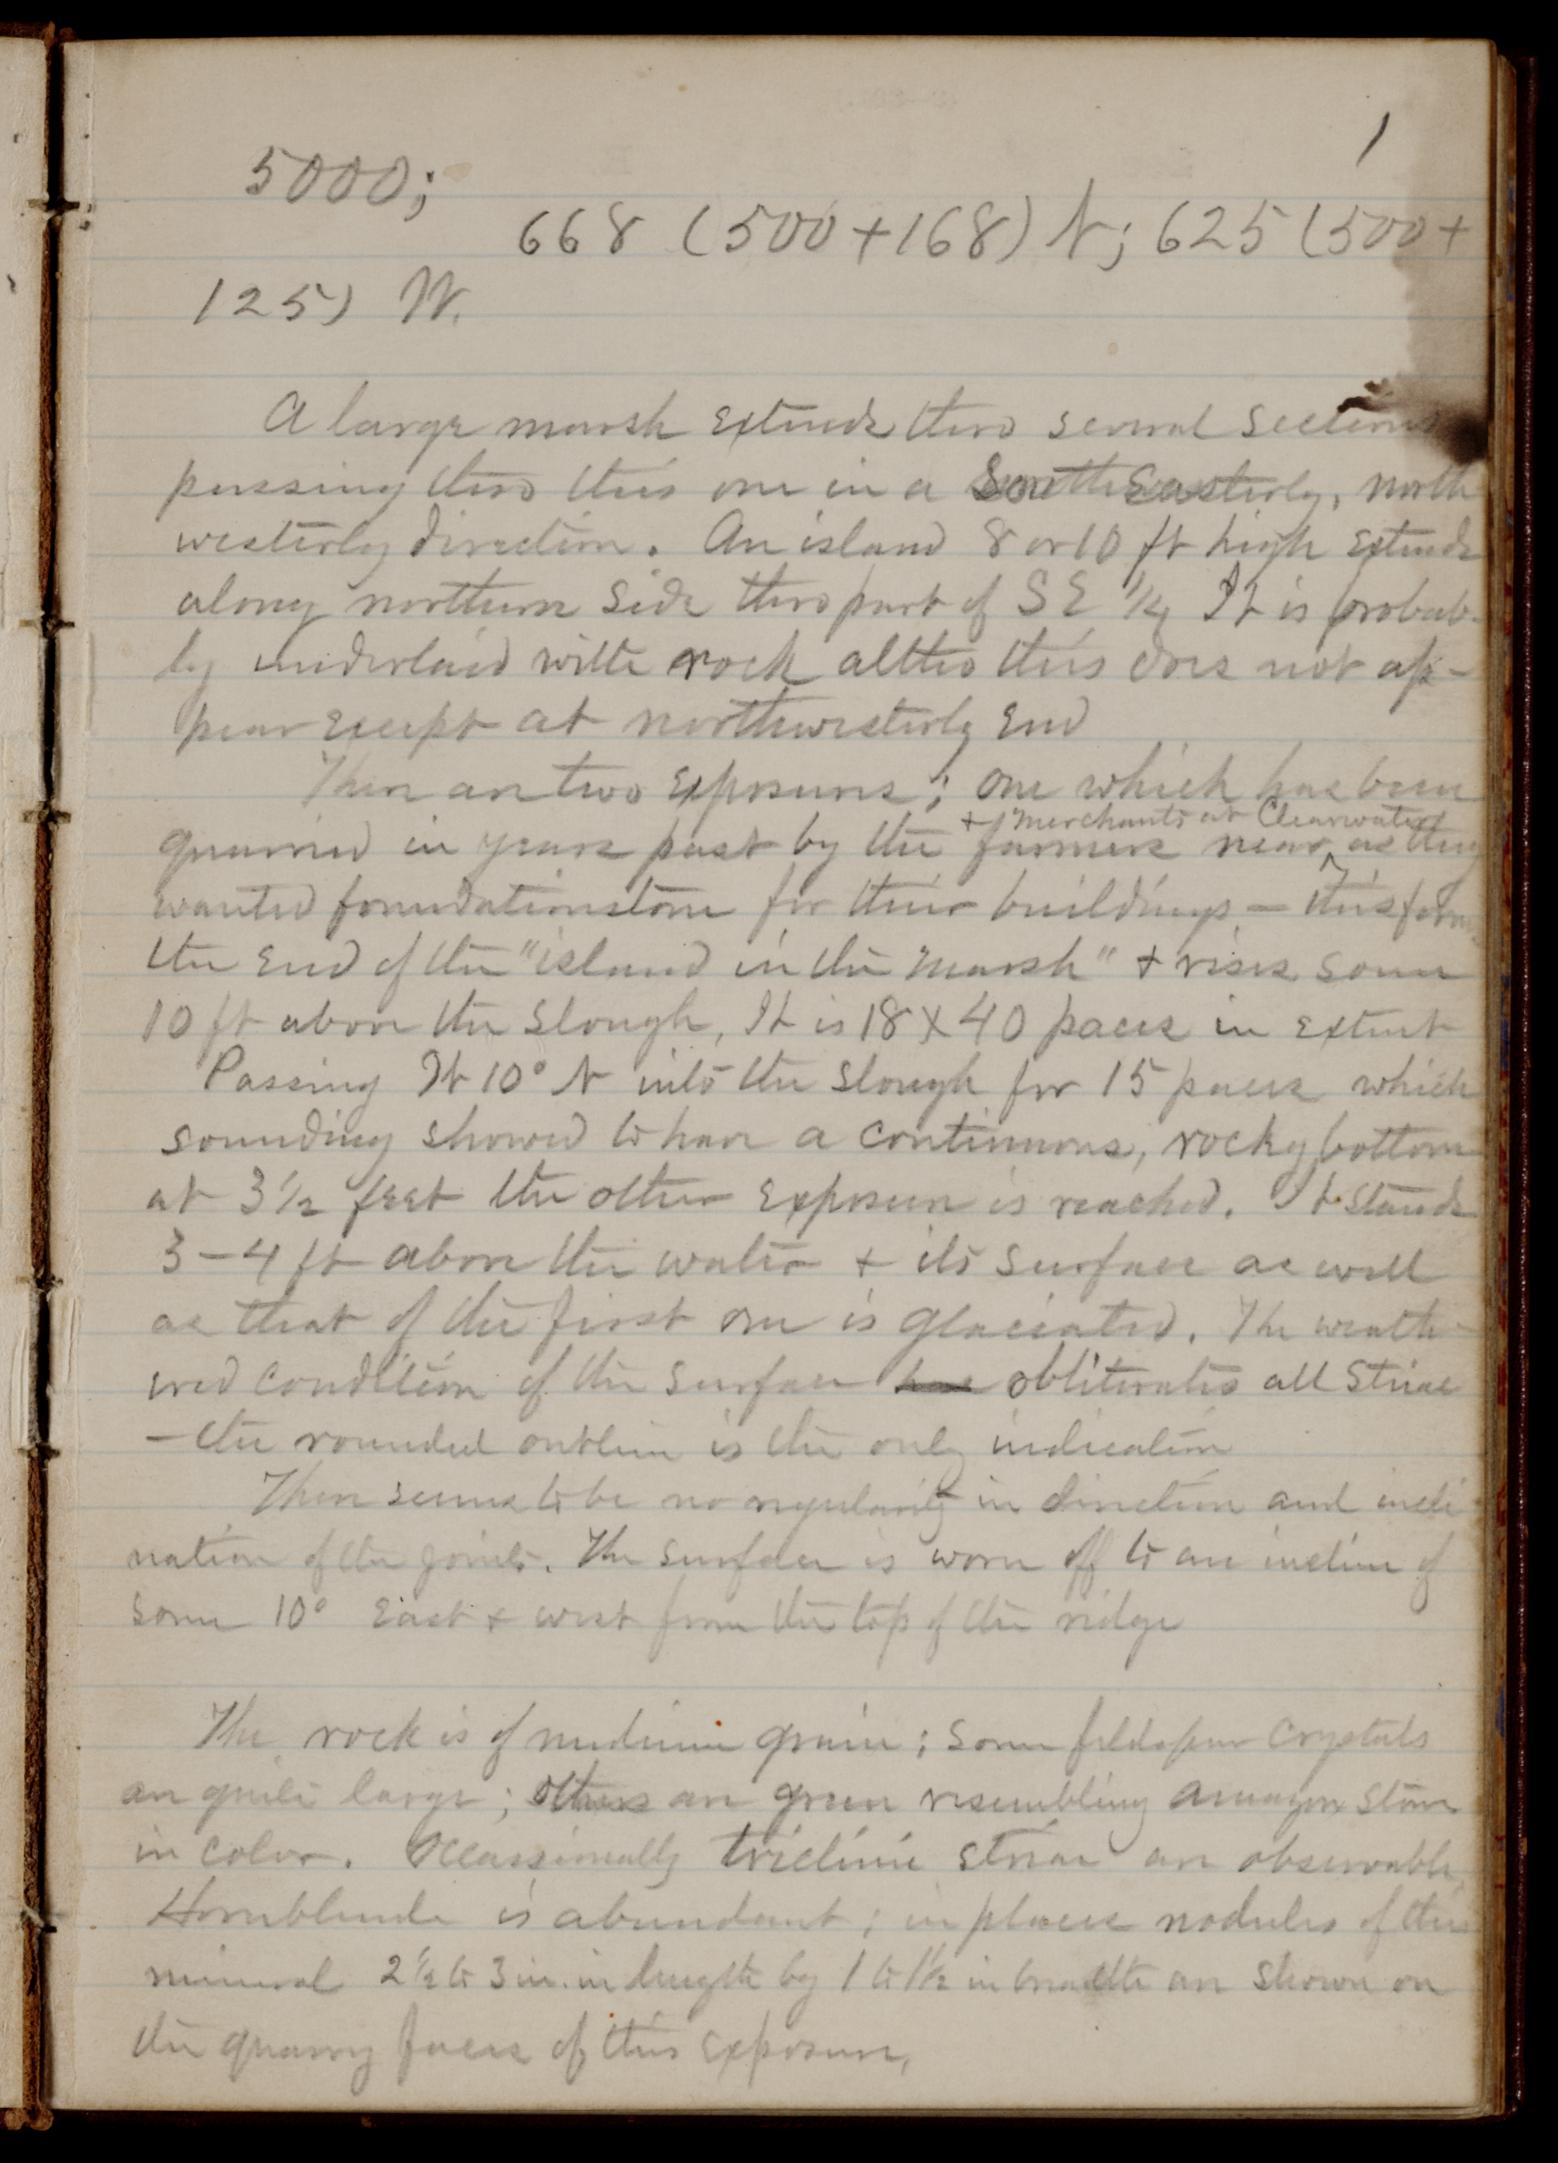 1
5000;
668 (500+168) N; 625 (500+
125) W.
A large marsh extends thro several sections
passing thro this one in a South Easterly, north
westerly direction. An island 8 or 10 ft high extends
along northern side thro part of SE 1/4 It is probab-
ly underlaid with rock altho this does not ap-
pear except at northwesterly end
There are two exposures; one which has been
+ merchants at Clearwater
quarried in years past by the farmers near, as they
wanted foundation stone for their buildings – this forms
the end of the "island in the marsh" + rises some
10 ft above the slough, It is 18 X 40 paces in extent
Passing W 10° N into the slough for 15 paces which
sounding showed to have a continuous, rocky bottom
at 3 1/2 feet the other exposure is reached. It stands
3–4 ft above the water + its surface as well
as that of the first one is glaciated. The weath-
ered condition of the surface has obliterates all striae
– the rounded outline is the only indication
There seems to be no regularity in direction and incli-
nation of the joints. The surface is worn off to an incline of
some 10° East + west from the top of the ridge
The rock is of medium grain; some feldspar crystals
are quite large; others are green resembling amazon stone
in color. Occassionally triclinic striae are observable,
Hornblende is abundant; in places nodules of this
mineral 2 1/2 to 3 in. in length by 1 to 1 1/2 in breadth are shown on
the quarry faces of this exposure,